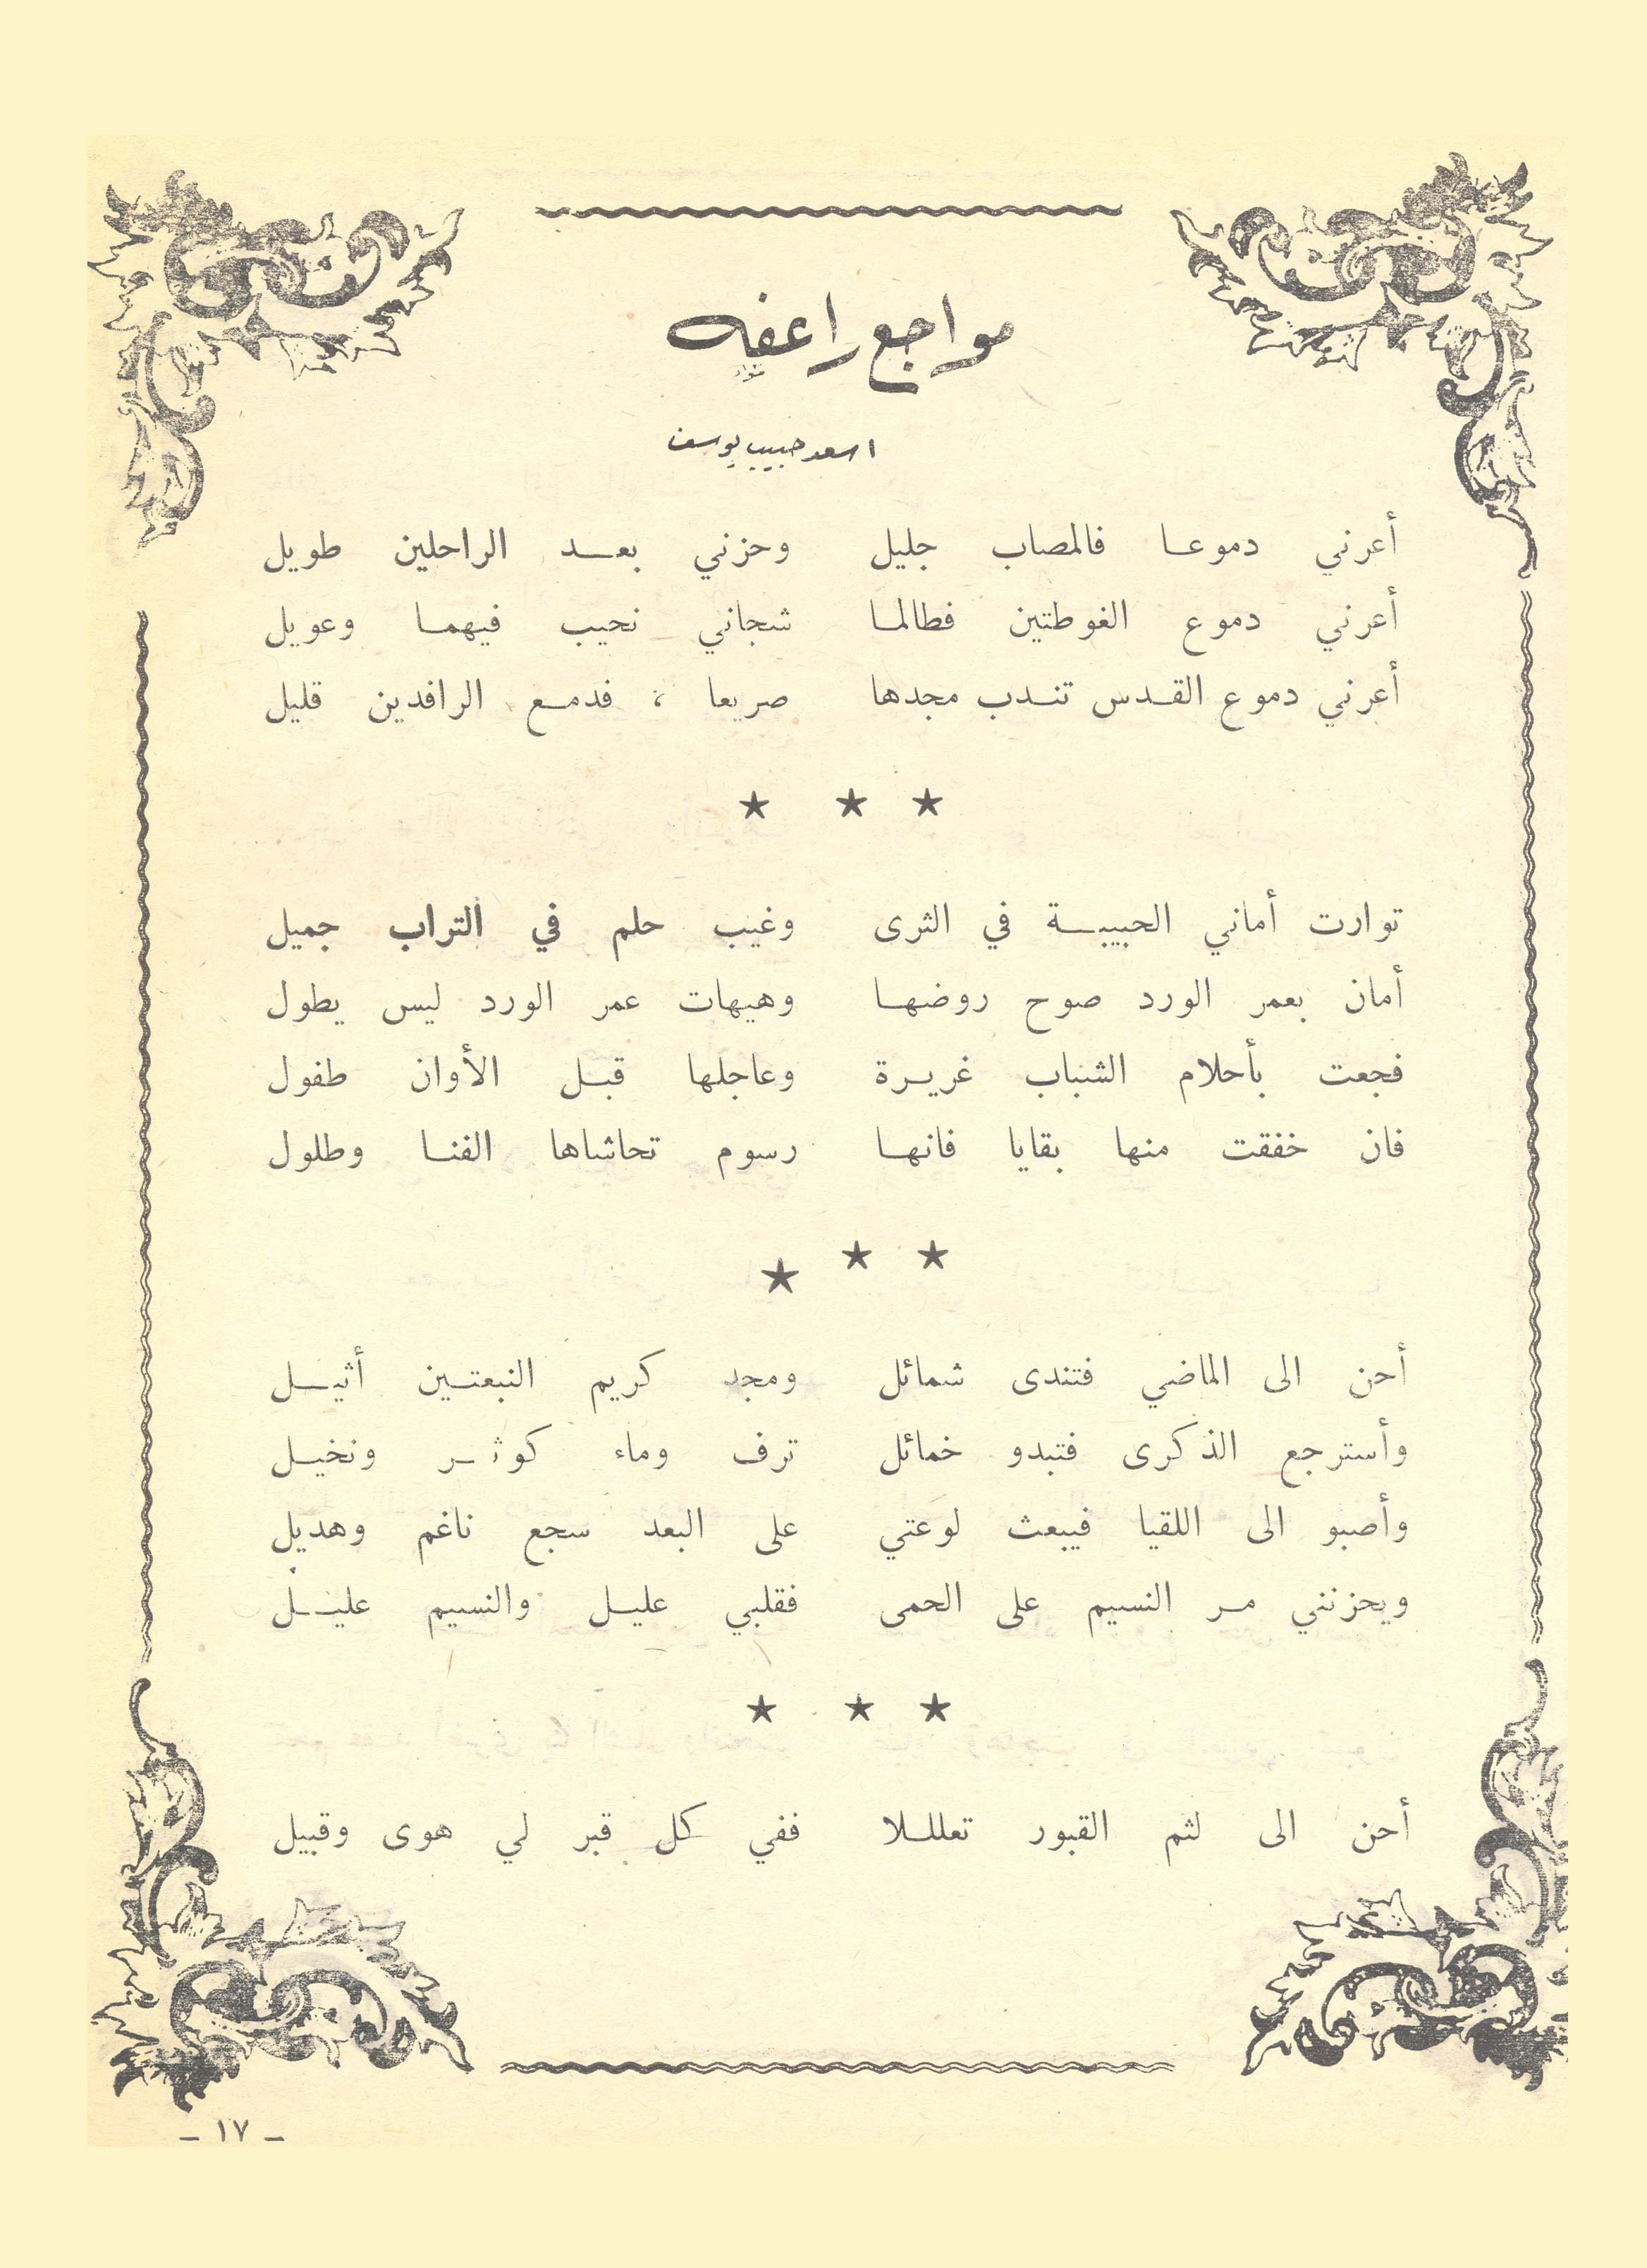 مواجع راعفه
اسعد حبيب يوسف
أعرني دموعا فالمصاب جليل وحزني بعد الراحلين طويل
أعرني دموع الغوطتين فطالما شجاني نحيب فيهما وعويل
أعرني دموع القدس تندب مجدها صريعا ، فدمع الرافدين قليل
★ ★ ★
توارت أماني الحبيبة في الثرى وغيب حلم في التراب جميل
أمان بعمر الورد صوح روضها وهيهات عمر الورد ليس يطول
فجعت بأحلام الشباب غريرة وعاجلها قبل الأوان طفول
فان خفقت منها بقايا فانها رسوم تحاشاها الفنا وطلول
★ ★ ★
أحن الى الماضي فتندى شمائل ومجد كريم النبعتين أثيل
وأسترجع الذكرى فتبدو خمائل ترف وماء كوثر ونخيل
وأصبو الى اللقيا فيبعث لوعتي على البعد سجع ناغم وهديل
ويحزنني مر النسيم على الحمى فقلبي عليل والنسيم عليل
★ ★ ★
أحن الى لثم القبور تعللا ففي كل قبر لي هوى وقبيل
- ١٧ -